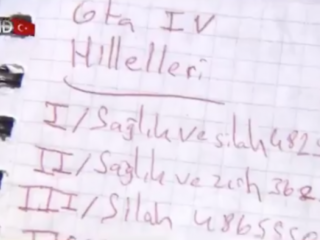 Gta IV
Hilleleri
I/Sağlık ve silah 482
II/Sağlık ve zırh 362
III/Silah 4865550